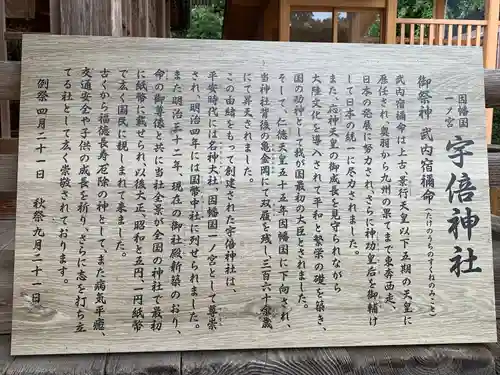 因幡国
一ノ宮
宇倍神社
御祭神 武内宿禰命(たけのうちのすくねのみこと)
武内宿禰命は上古、景行天皇以下五期の天皇に
歴任され、奥羽から九州の果てまで東奔西走、
日本の発展に努力され、さらに神功皇后を御輔け
して日本の統一に尽力されました。
また、応神天皇の御成長を見守られながら
大陸文化を導入されて平和と繁栄の礎を築き、
国の功神として我が国最初の大臣とされました。
そして、仁徳天皇五十五年因幡国に下向され、
当神社背後の亀金岡にて双履を残し三百六十余歳
にて昇天されました。
この由緒をもって創建された宇倍神社は、
平安時代には名神大社、因幡国一ノ宮として尊崇
され、明治四年には国幣中社に列せられました。
また明治三十二年、現在の御社殿新築のおり、
命の御尊像と共に当社全景が全国の神社で最初
に紙幣に載せられ、以後大正、昭和と五円一円紙幣
で広く国民に親しまれて来ました。
古くから福徳長寿厄除の神として、また病気平癒、
交通安全や子供の成長を祈り、さらに志を打ち立
てる社として広く崇敬されております。
例祭四月二十一日 秋祭九月二十一日